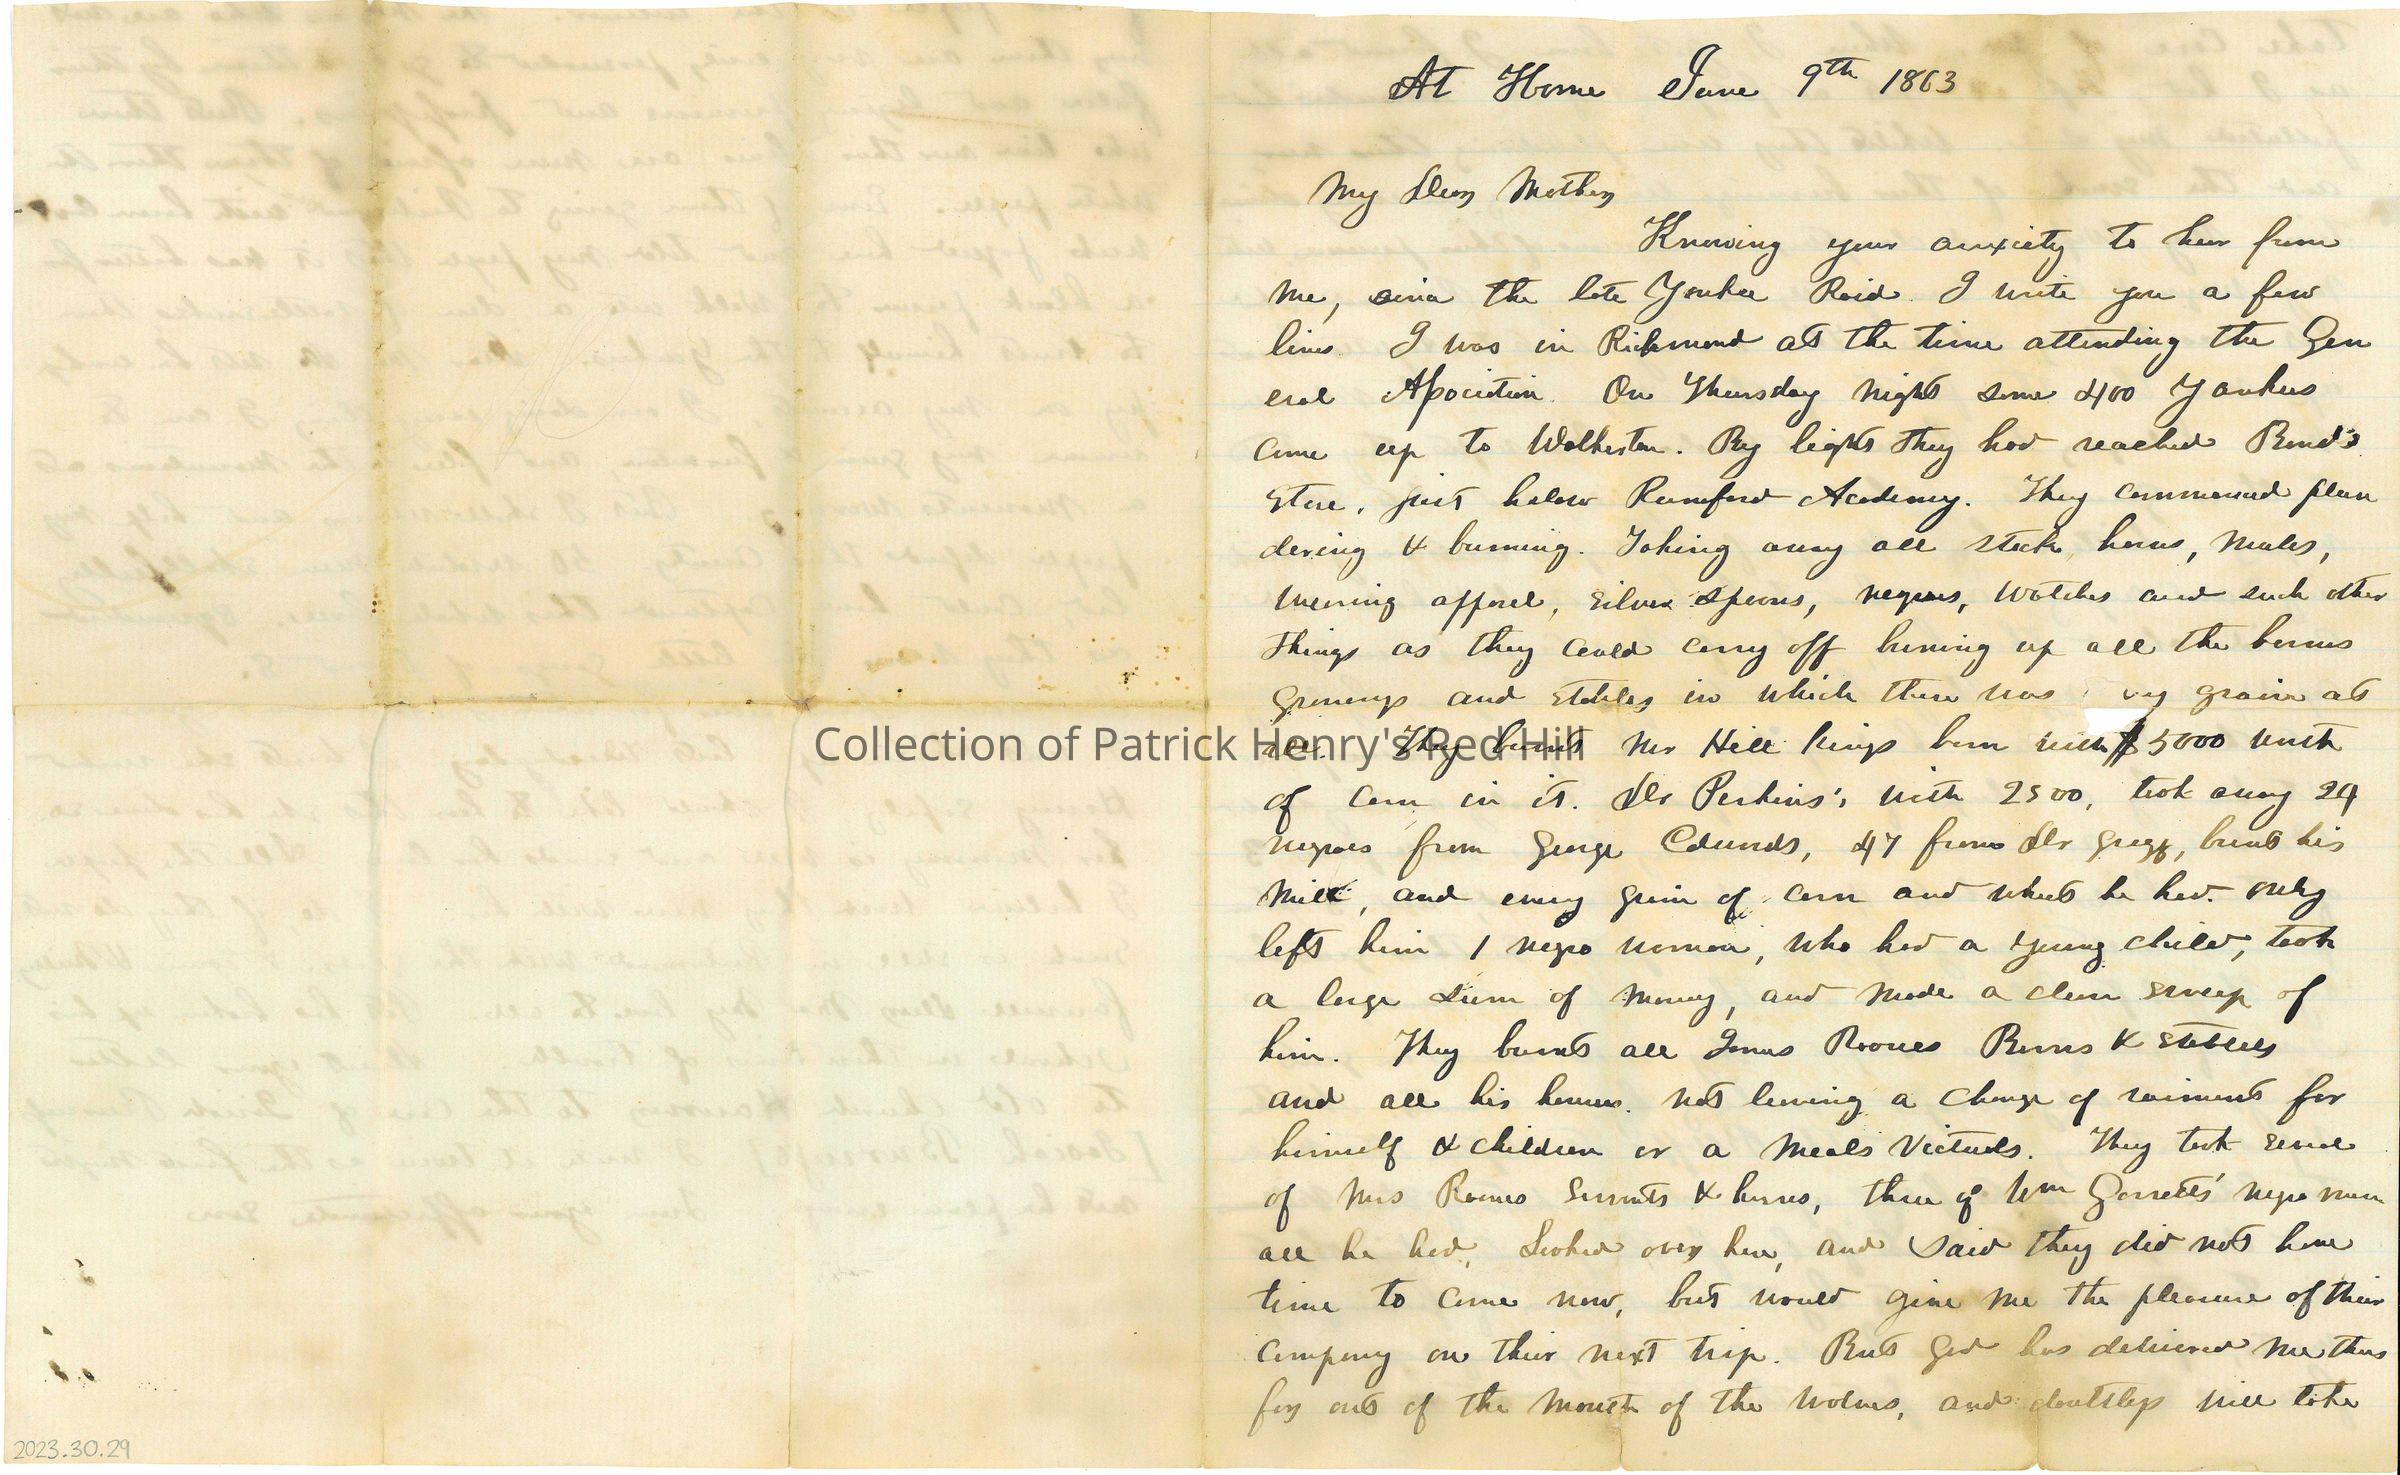 At Home June 9th 1863
My Dear Mother
Knowing your anxiety to hear from
me, since the late Yankee Raid. I write you a few
lines. I was in Richmond at the time attending the Gen
eral Association. On Thursday night some 400 Yankees
came up to Walkerton. By light they had reached Bond's
Store, just below Rumford Academy. They commenced plun
dering & burning. Taking away all stock, horses, mules,
wearing apparel, silver spoons, negroes, watches and such other
things as they could carry off burning up all the barns
Granerys and stables in which there was any grain at
all. They burnt Mr Hill Kings barn with $5000 worth
of corn in it. Dr Perkins's with 2500, took away 24
negroes from George Edwards, 47 from Dr Gregg, burnt his
Mill, and every grain of corn and wheat he had. only
left him 1 negro woman, who had a young child, took
a large sum of money, and made a clean sweep of
him. They burnt all Roanes Barns & stables
and all his houses. not leaving a change of raiment for
himself & children or a meals victuals. They took several
of Mrs Roanes servants & horses, three of Wm Garretts' negro men
all he had, Looked over here, and said they did not have
time to come now, but would give me the pleasure of their
company on their next trip. But God has delivered me thus
far out of the mouth of the wolves, and will take
Collection of Patrick Henry's Red Hill
2023.30.29